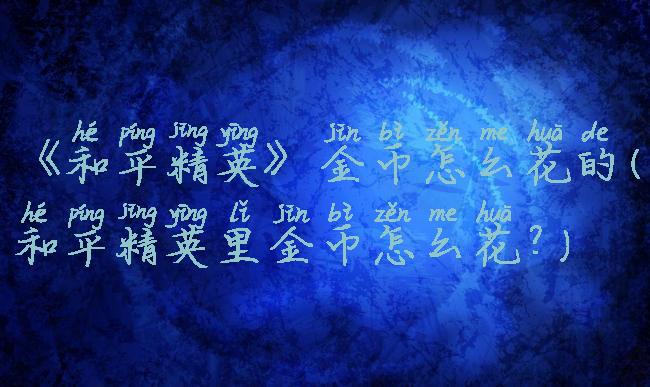 hé píng jīng yīng jīn bì zěn me huā de
《和平精英》金币怎么花的(
hé píng jīng yīng lǐ jīn bì zěn me huā
和平精英里金币怎么花?)